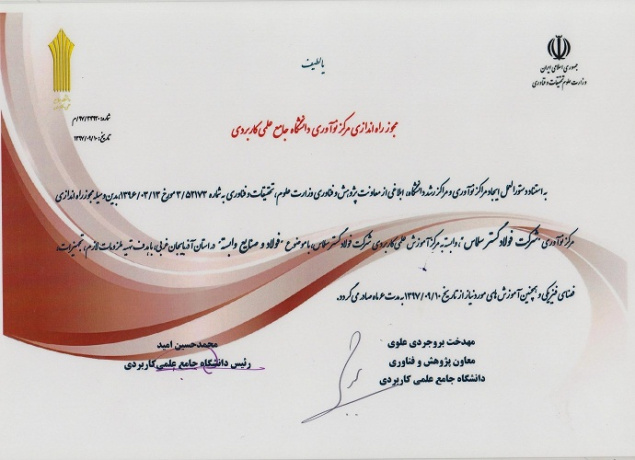 جمهوری اسلامی ایران
وزارت علوم تحقیقات و فناوری
یا لطیف
شماره: ۹۷/۲۳۹۲۰/م
تاریخ: ۱۳۹۷/۰۹/۱۰
مجوز راه اندازی مرکز نوآوری دانشگاه جامع علمی کاربردی
به استناد دستورالعمل ایجاد مراکز نوآوری و مراکز رشد دانشگاه، ابلاغی از معاونت پژوهش و فناوری وزارت علوم، تحقیقات و فناوری به شماره ۳/۵۲۱۷۳ مورخ ۱۳۹۶/۰۳/۱۳، بدین وسیله مجوز راه اندازی
مرکز نوآوری "شرکت فولاد گستر سلماس"، وابسته به مرکز آموزش علمی کاربردی شرکت فولاد گستر سلماس، با موضوع "فولاد و صنایع وابسته" در استان آذربایجان غربی با هدف تهیه ملزومات لازم، تجهیزات،
فضای فیزیکی و همچنین آموزش های مورد نیاز از تاریخ ۱۳۹۷/۰۹/۱۰ به مدت ۶ ماه صادر می گردد.
مهدخت بروجردی علوی
معاون پژوهش و فناوری
دانشگاه جامع علمی کاربردی
محمدحسین امید
رئیس دانشگاه جامع علمی کاربردی